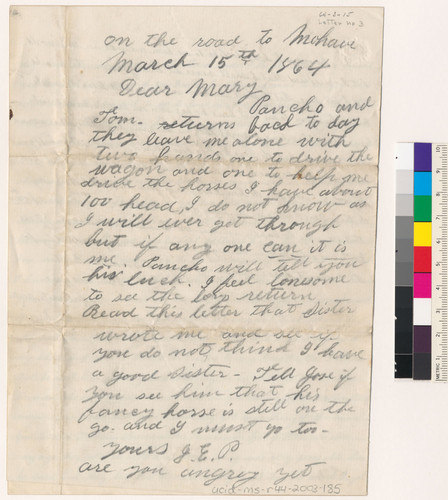 U-2-15
Letter No 3
on the road to Mohave
March 15th 1864
Dear Mary
Pancho and
Tom. returns back to day
they leave me alone with
two hands one to drive the
wagon and one to help me
drive the horses I have about
100 head, I do not know as
I will ever get through
but if any one can it is
me. Pancho will tell you
his luck. I feel lonesome
to see the boys return
Read this letter that Sister
wrote me and see if
you do not think I have
a good sister - Tell Jose if
you see him that his
fancy horse is still on the
go. and I must go too-
yours J.E.P.
are you angry yet
ucid-ms-r44-2003-185